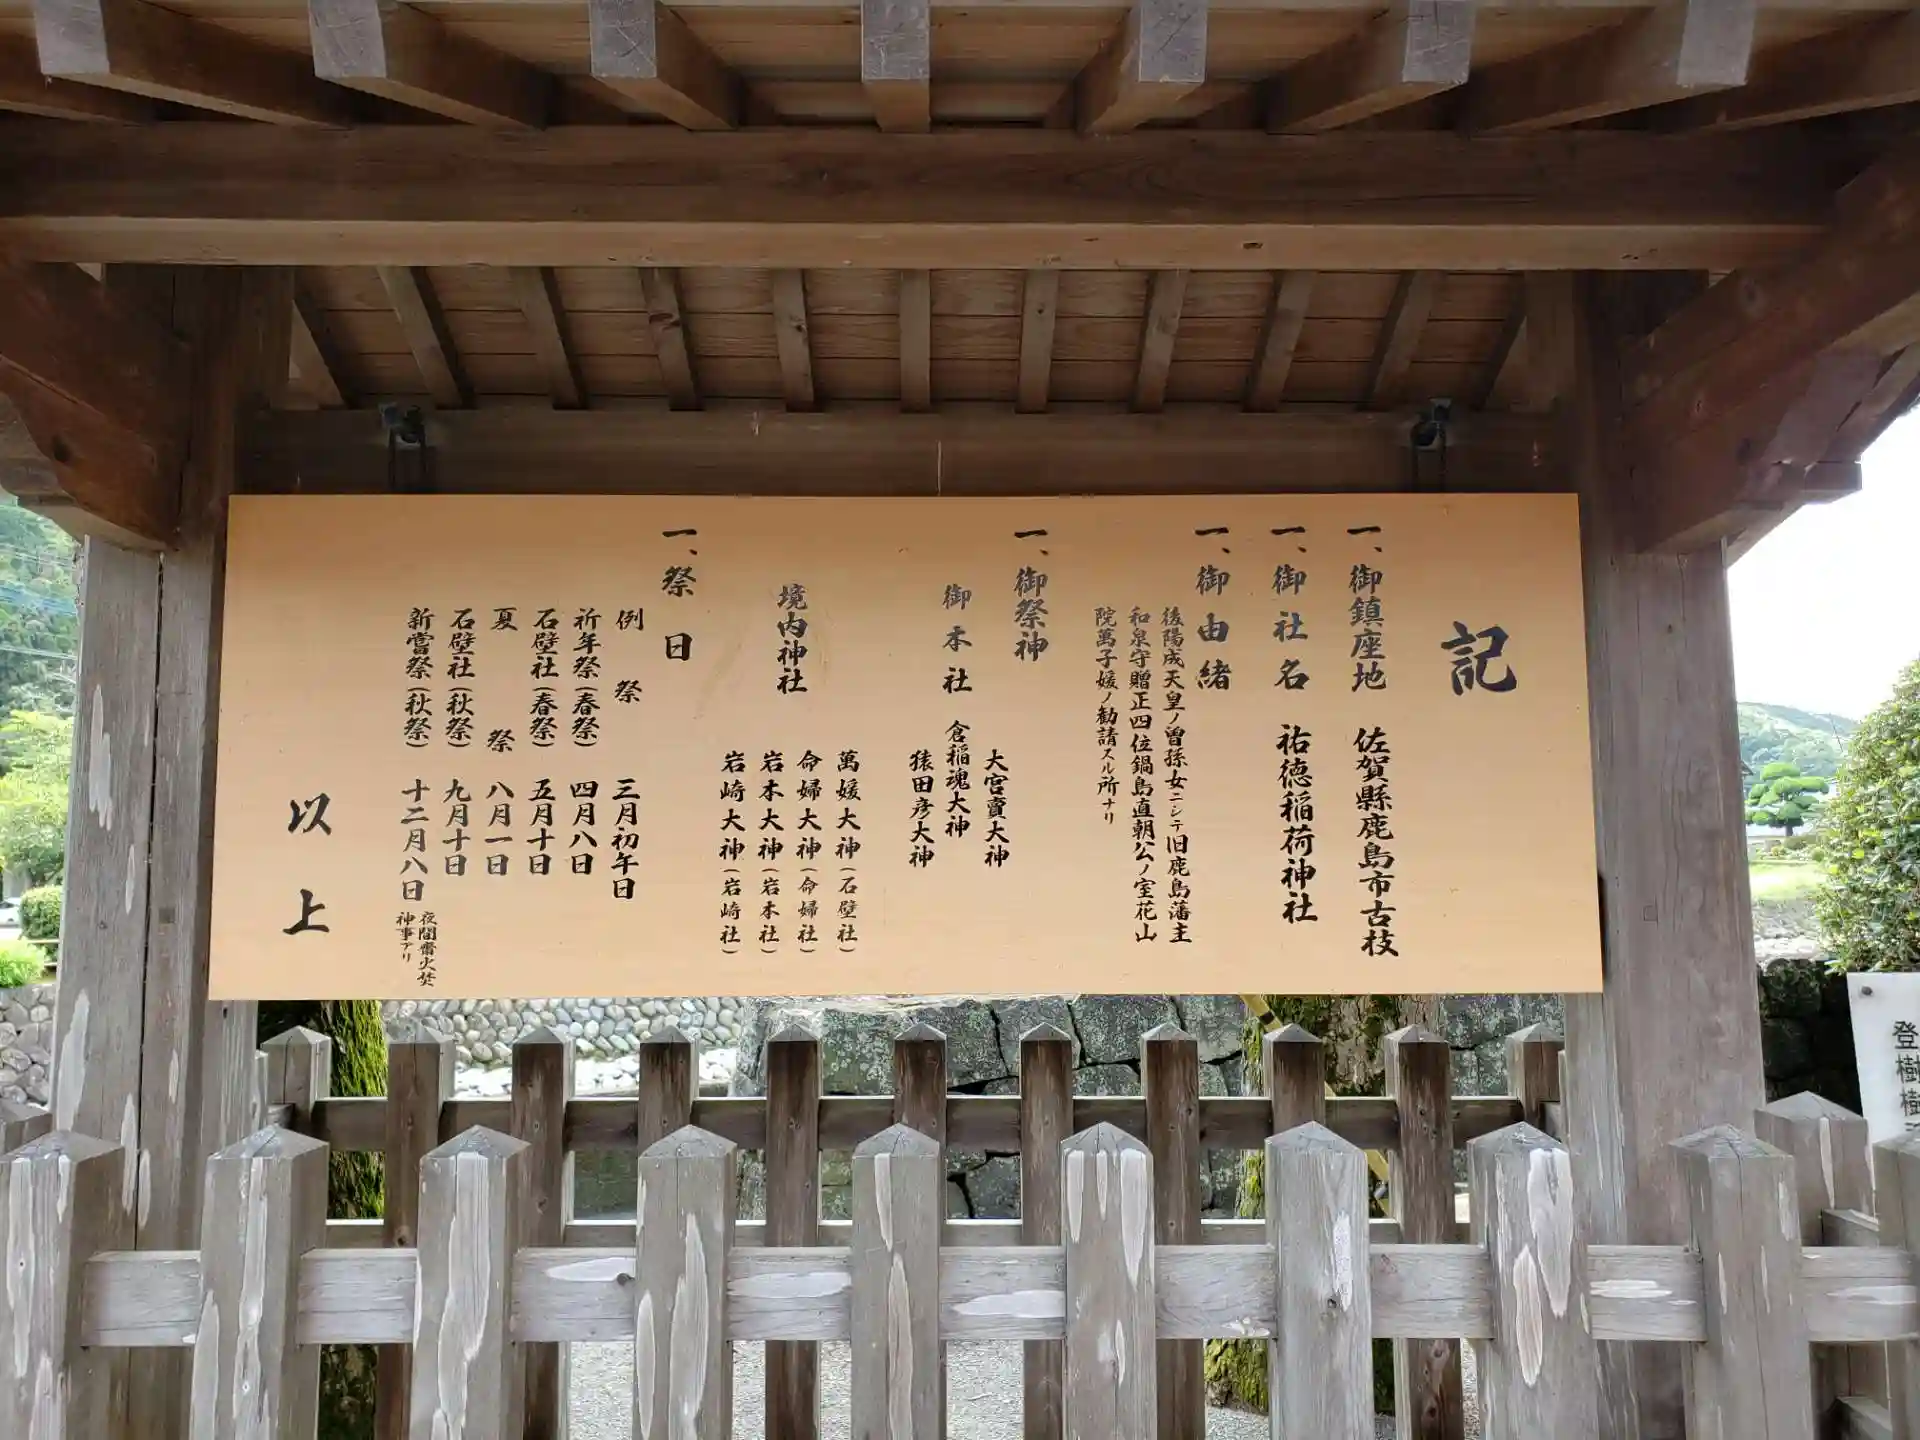 記
一、御鎮座地 佐賀縣鹿島市古枝
一、御社名 祐徳稲荷神社
一、御由緒
後陽成天皇ノ曽孫女ニシテ旧鹿島藩主
和泉守贈正四位鍋島直朝公ノ室花山
院萬子媛ノ勧請スル所ナリ
一、御祭神
大宮賣大神
御本社 倉稲魂大神
猿田彦大神
境内神社
萬媛大神(石壁社)
命婦大神(命婦社)
岩本大神(岩本社)
岩崎大神(岩崎社)
一、祭日
例祭 三月初午日
祈年祭(春祭) 四月八日
石壁社(春祭) 五月十日
夏祭 八月一日
石壁社(秋祭) 九月十日
新嘗祭(秋祭) 十二月八日
夜間齋火焚
神事アリ
以上
登樹